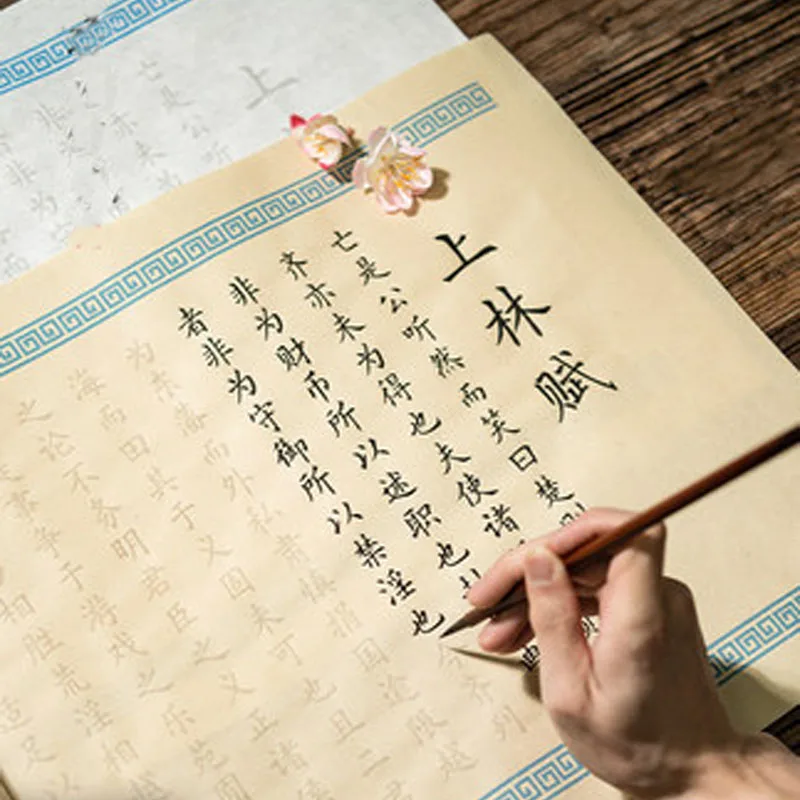 上林赋
亡是公听然而笑曰楚则
齐亦未为得也夫使诸
非为财币所以述职也
者非为守御所以禁淫也今齐列
为东藩而外私肃慎捐国逾限越
海而田其于义固未可也且二君
之论不务明君臣之义正诸侯
事争于游戏之乐苑囿
相胜荒淫相越
适足以
上
亡是公听
亦未
非为